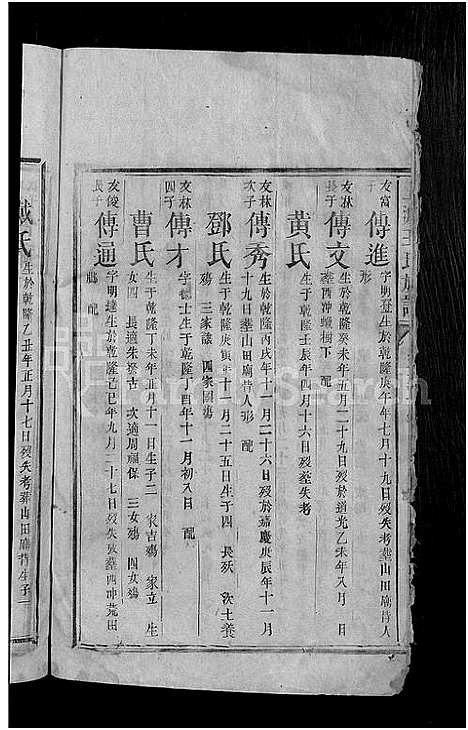 友富
長子 傳進 字明□生於乾隆庚午年七月十九日歿失考葬山田廟背人
形
友林
長子 傳文 生於乾隆癸未年五月二十九日歿於道光乙未年八月 日
葬西冲 樹下 配
黃氏 生於乾隆壬辰年四月十六日歿葬失考
友林
次子 傳秀 生於乾隆丙戌年十一月二十六日歿於嘉慶庚辰年十一月
十九日葬山田廟背人形 配
鄧氏 生於乾隆庚寅年十一月二十五日生子四 長歿 次士養
殤 三家 四家國殤
友林
四子 傳才 字 士生于乾隆丁酉年十一月初八日 配
曹氏 生于乾隆丁未年五月十一日生子二 家吉殤 家立 生
女四 長適朱 古 次適周福保 三女殤 四女殤
友俊
長子 傳通 字明達生於乾隆己巳年九月二十七日歿失考葬西冲荒田
配
戴氏 生於乾隆乙丑年正月十七日歿失考葬山田廟背生子二
AncestrySearch